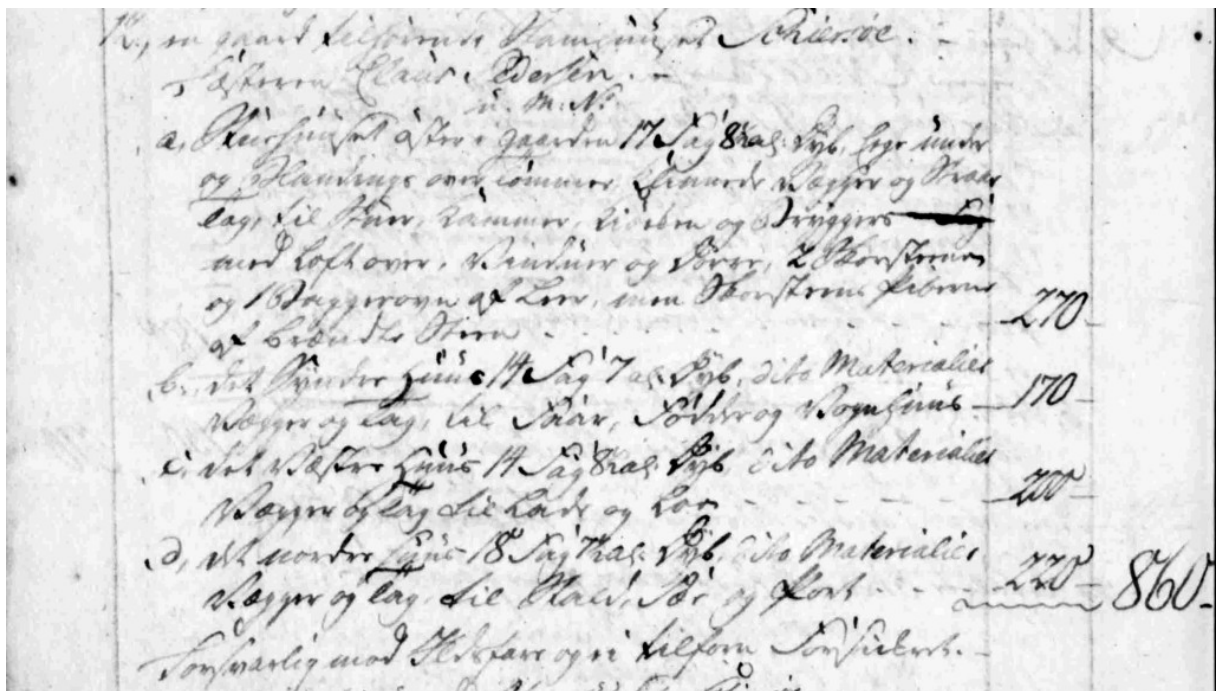 12, en gaard tilhørende Stamhuuset Schiersøe
Fæsteren Claus Pedersen.
u. M. N.
a, Stuehuuset øster i gaarden 17 Fag 8 al: Dyb, Ege under
og Blandings over tømmer, Klinede Vægger og Straae
tag, til Stuer, Kammer, Kiøcken og Bryggers
med Loft over, Vinduer og Dørre, 2 Skorsteene
og 1 Baggerovn af Leer, men Skorsteens Piberne
af brændte Steen 270
b. det Syndre Huus 14 Fag 7 al: Dyb, dito Materialier
Vægger og tag, til Faar, Foder og Vognhuus 170
c. det Væstre Huus 14 Fag 8 al: Dyb dito Materialier
Vægger og tag til Lade og Loe 200
d, det nordre Huus 18 Fag 7 al: Dyb, dito Materialier
Vægger og tag til Stald, og Port 220 860
Forsvarlig mod Ildsfare og ei tilforn Forsikret.